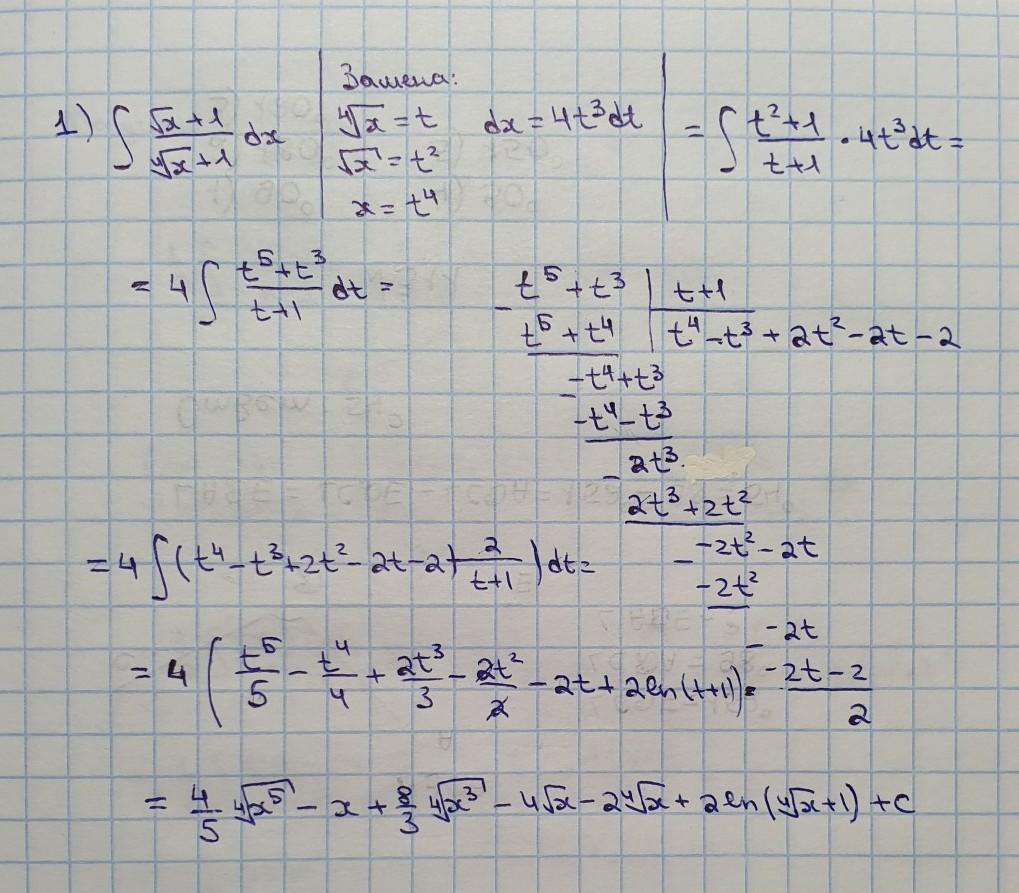 1) ∫ (√x + 1)/(∜x + 1) dx | Замена: ∜x = t √x = t² x = t⁴ dx = 4t³dt | = ∫ (t² + 1)/(t + 1) · 4t³dt =
= 4 ∫ (t⁵ + t³)/(t + 1) dt =
- t⁵ + t³ | t + 1
t⁵ + t⁴ | t⁴ - t³ + 2t² - 2t - 2
- -t⁴ + t³
-t⁴ - t³
- 2t³
2t³ + 2t²
- -2t² - 2t
-2t²
- -2t
-2t - 2
2
= 4 ∫ (t⁴ - t³ + 2t² - 2t - 2 + 2/(t + 1)) dt =
= 4 (t⁵/5 - t⁴/4 + 2t³/3 - 2t²/2 - 2t + 2 ln(t+1)) =
= 4/5 ∜x⁵ - x + 8/3 ∜x³ - 4√x - 2∜x + 2 ln(∜x + 1) + c